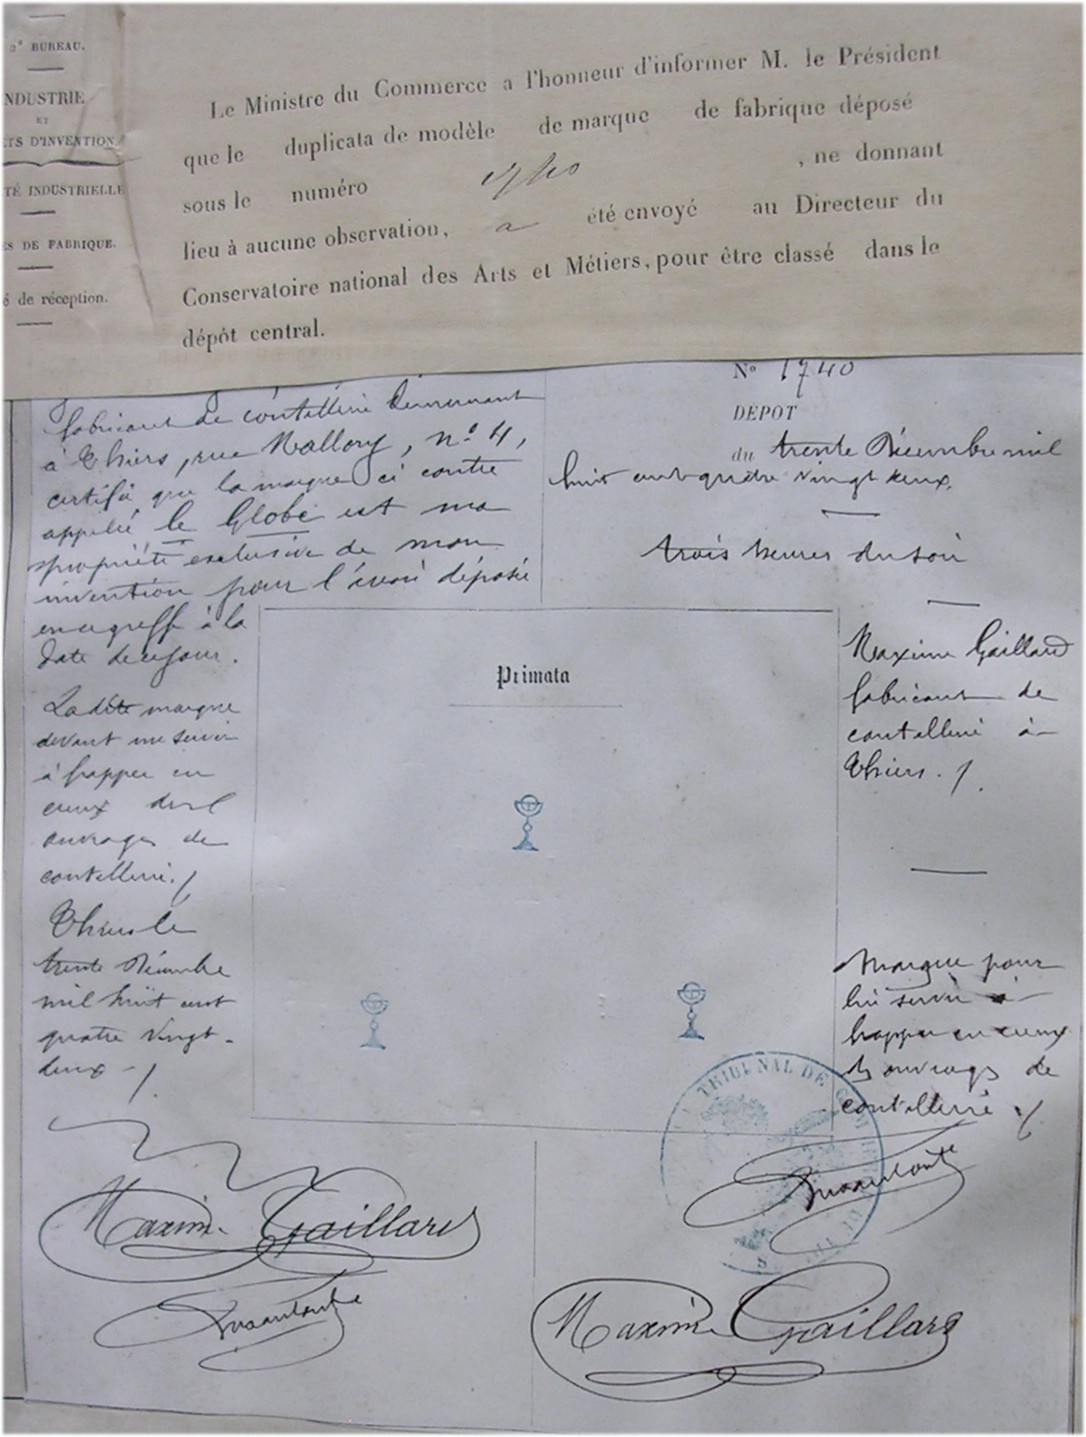 2e BUREAU.
NDUSTRIE
ET
TS D'INVENTION
TÉ INDUSTRIELLE
S DE FABRIQUE.
é de réception.
Le Ministre du Commerce a l'honneur d'informer M. le Président
que le duplicata de modèle de marque de fabrique déposé
sous le numéro 1740, ne donnant
lieu à aucune observation, a été envoyé au Directeur du
Conservatoire national des Arts et Métiers, pour être classé dans le
dépôt central.
fabricant de coutellerie demeurant
à Thiers, rue Mallory, n° 4,
certifie que la marque ci contre
appelée le Globe est ma
propriété exclusive de mon
invention pour l'avoir déposée
en ce greffe à la
date de ce jour.
La dite marque
devant me servir
à frapper en
creux des
ouvrages de
coutellerie.
Thiers le
trente Décembre
mil huit cent
quatre vingt-
deux
N° 1740
DÉPOT
du trente Décembre mil
huit cent quatre vingt deux,
trois heures du soir
Primata
Maxime Gaillard
fabricant de
coutellerie à
Thiers.
Marque pour
lui servir à
frapper en creux
des ouvrages de
coutellerie
TRIBUNAL DE
Maxime Gaillard
Maxime Gaillard